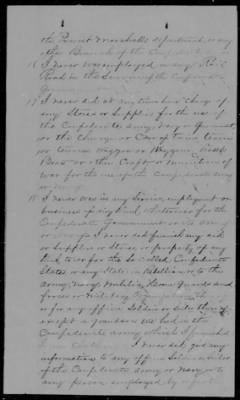 the Provost Marshall's department or any
other Branch of the
16 I never was employed in any Rail
Road in the Service of the Confederate
Government
17 I never did at any time have charge of
any Stores or Supplies for the use of
the Confederate army, navy or government,
or the charge or Care of any team
or teams waggon or waggons, Boat,
Boats or other Craft or munitions of
War for the use of the Confederate army
or navy
18 I never was in any Service, employment or
business of any kind whatever for the
Confederate government or its army
or navy I never did furnish any aid
or Supplies or Stores, or property of any
kind to or for the So Called Confederate
States or any State in Rebellion or to the
army, navy, Militia, Home guards and
forces or Military
or for any officer Soldier or Sailor
except a grandson who had in the
Confederate army which I furnished
I never did give any
information to any officer Soldier or Sailor
of the Confederate army or Navy or to
any person employed by